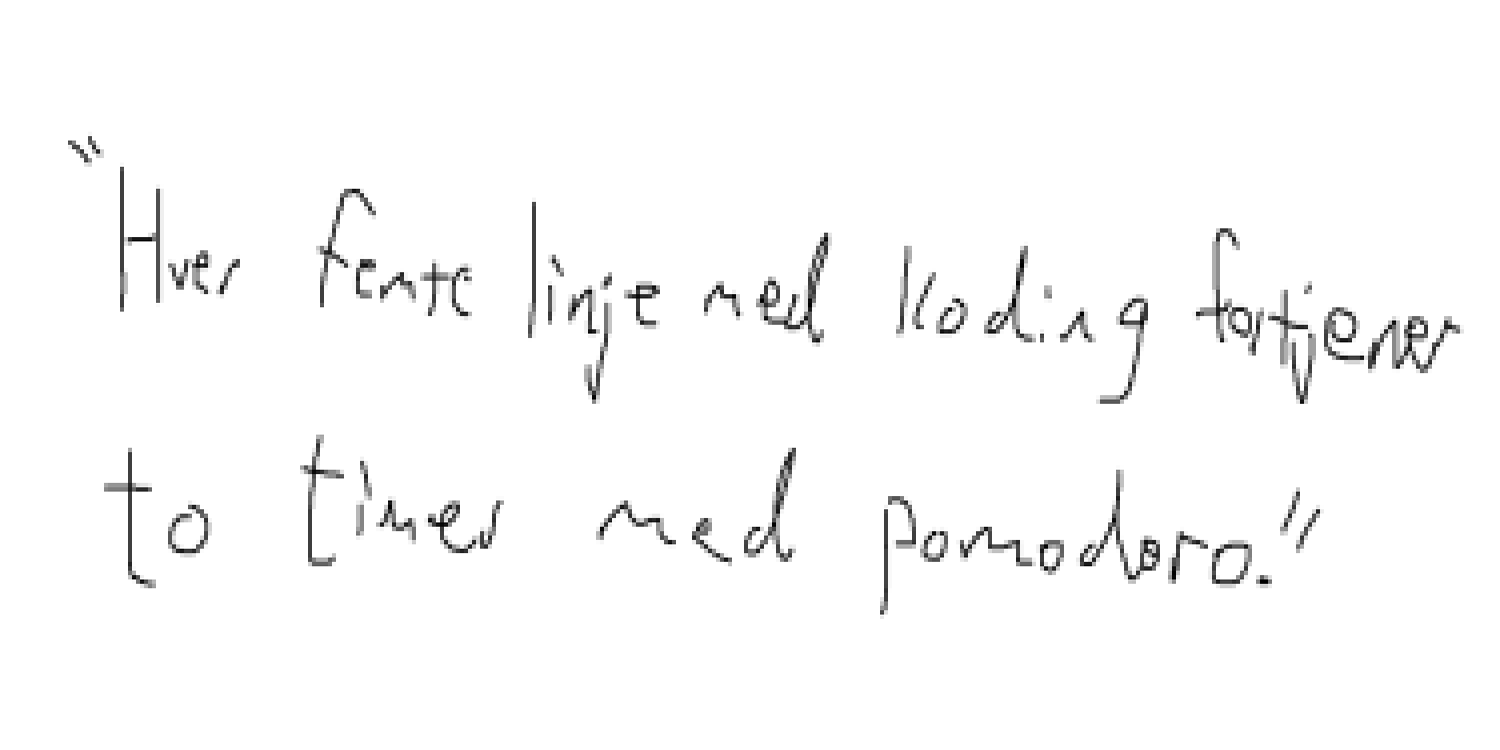 "Hver femte linje med koding fortjener
to timer med pomodoro."